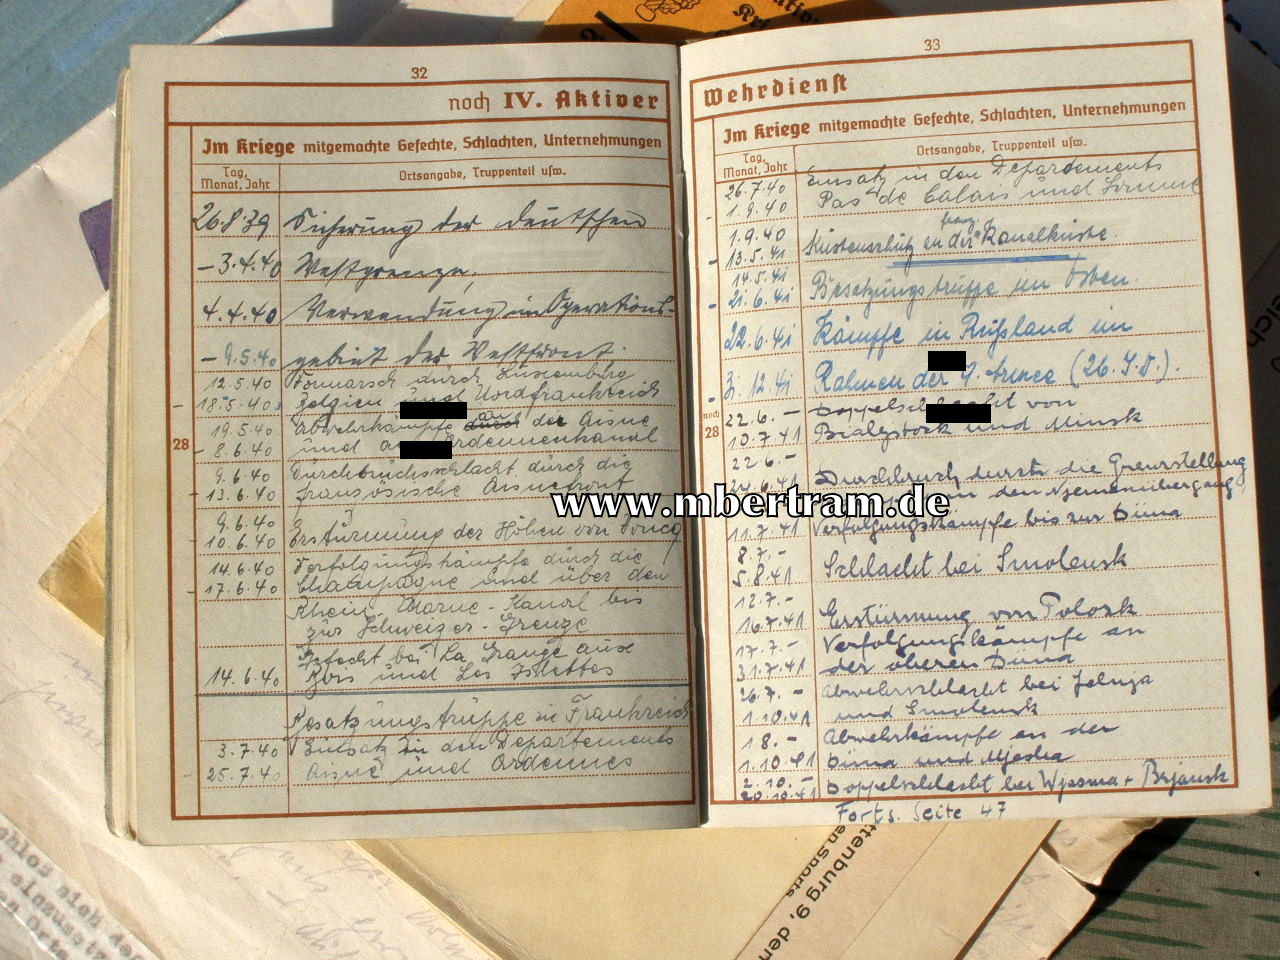 32
noch IV. Aktiver
Im Kriege mitgemachte Gefechte, Schlachten, Unternehmungen
Tag, Monat, Jahr
Ortsangabe, Truppenteil usw.
26.8.39 Sicherung der deutschen
– 3.4.40 Westgrenze.
4.4.40 Verwendung im Operations-
– 9.5.40 gebiet der Westfront.
12.5.40 Vormarsch durch Luxemburg
– 18.5.40 Belgien und Nordfrankreich
19.5.40 Abwehrkämpfe an der Aisne
28
– 8.6.40 und Ardennenkanal
9.6.40 Durchbruchsschlacht durch die
– 13.6.40 französische Aisnefront
9.6.40
– 10.6.40 Erstürmung der Höhen von Voncq
14.6.40 Verfolgungskämpfe durch die
– 17.6.40 Champagne und über den
Rhein-Marne-Kanal bis
zur Schweizer-Grenze
Gefecht bei La Grange aux
14.6.40 Bois und Les Islettes
Besatzungstruppe in Frankreich
3.7.40 Einsatz in den Departements
– 25.7.40 Aisne und Ardennes
33
Wehrdienst
Im Kriege mitgemachte Gefechte, Schlachten, Unternehmungen
Tag, Monat, Jahr
Ortsangabe, Truppenteil usw.
26.7.40 Einsatz in den Departements
– 1.9.40 Pas de Calais und Somme
1.9.40
franz.
– 13.5.41 Küstenschutz an der Kanalküste.
14.5.41
– 21.6.41 Besatzungstruppe im Osten.
22.6.41 Kämpfe in Rußland im
– 31.12.41 Rahmen der 9. Armee (26. I.D.).
noch
28
22.6.– Doppelschlacht von
10.7.41 Bialystock und Minsk
22.6.–
24.6.41 Durchbruch durch die Grenzstellung
den Njemenübergang
11.7.41 Verfolgungskämpfe bis zur Düna
8.7.–
5.8.41 Schlacht bei Smolensk
12.7.–
16.7.41 Erstürmung von Polozk
17.7.– Verfolgungskämpfe an
31.7.41 der oberen Düna
26.7.– Abwehrschlacht bei Jelnja
1.10.41 und Smolensk
1.8.– Abwehrkämpfe an der
1.10.41 Düna und
2.10.–
20.10.41 Doppelschlacht bei Wjasma + Brjansk
Forts. Seite 47
www.mbertram.de
ttenburg 9, den
en Sports